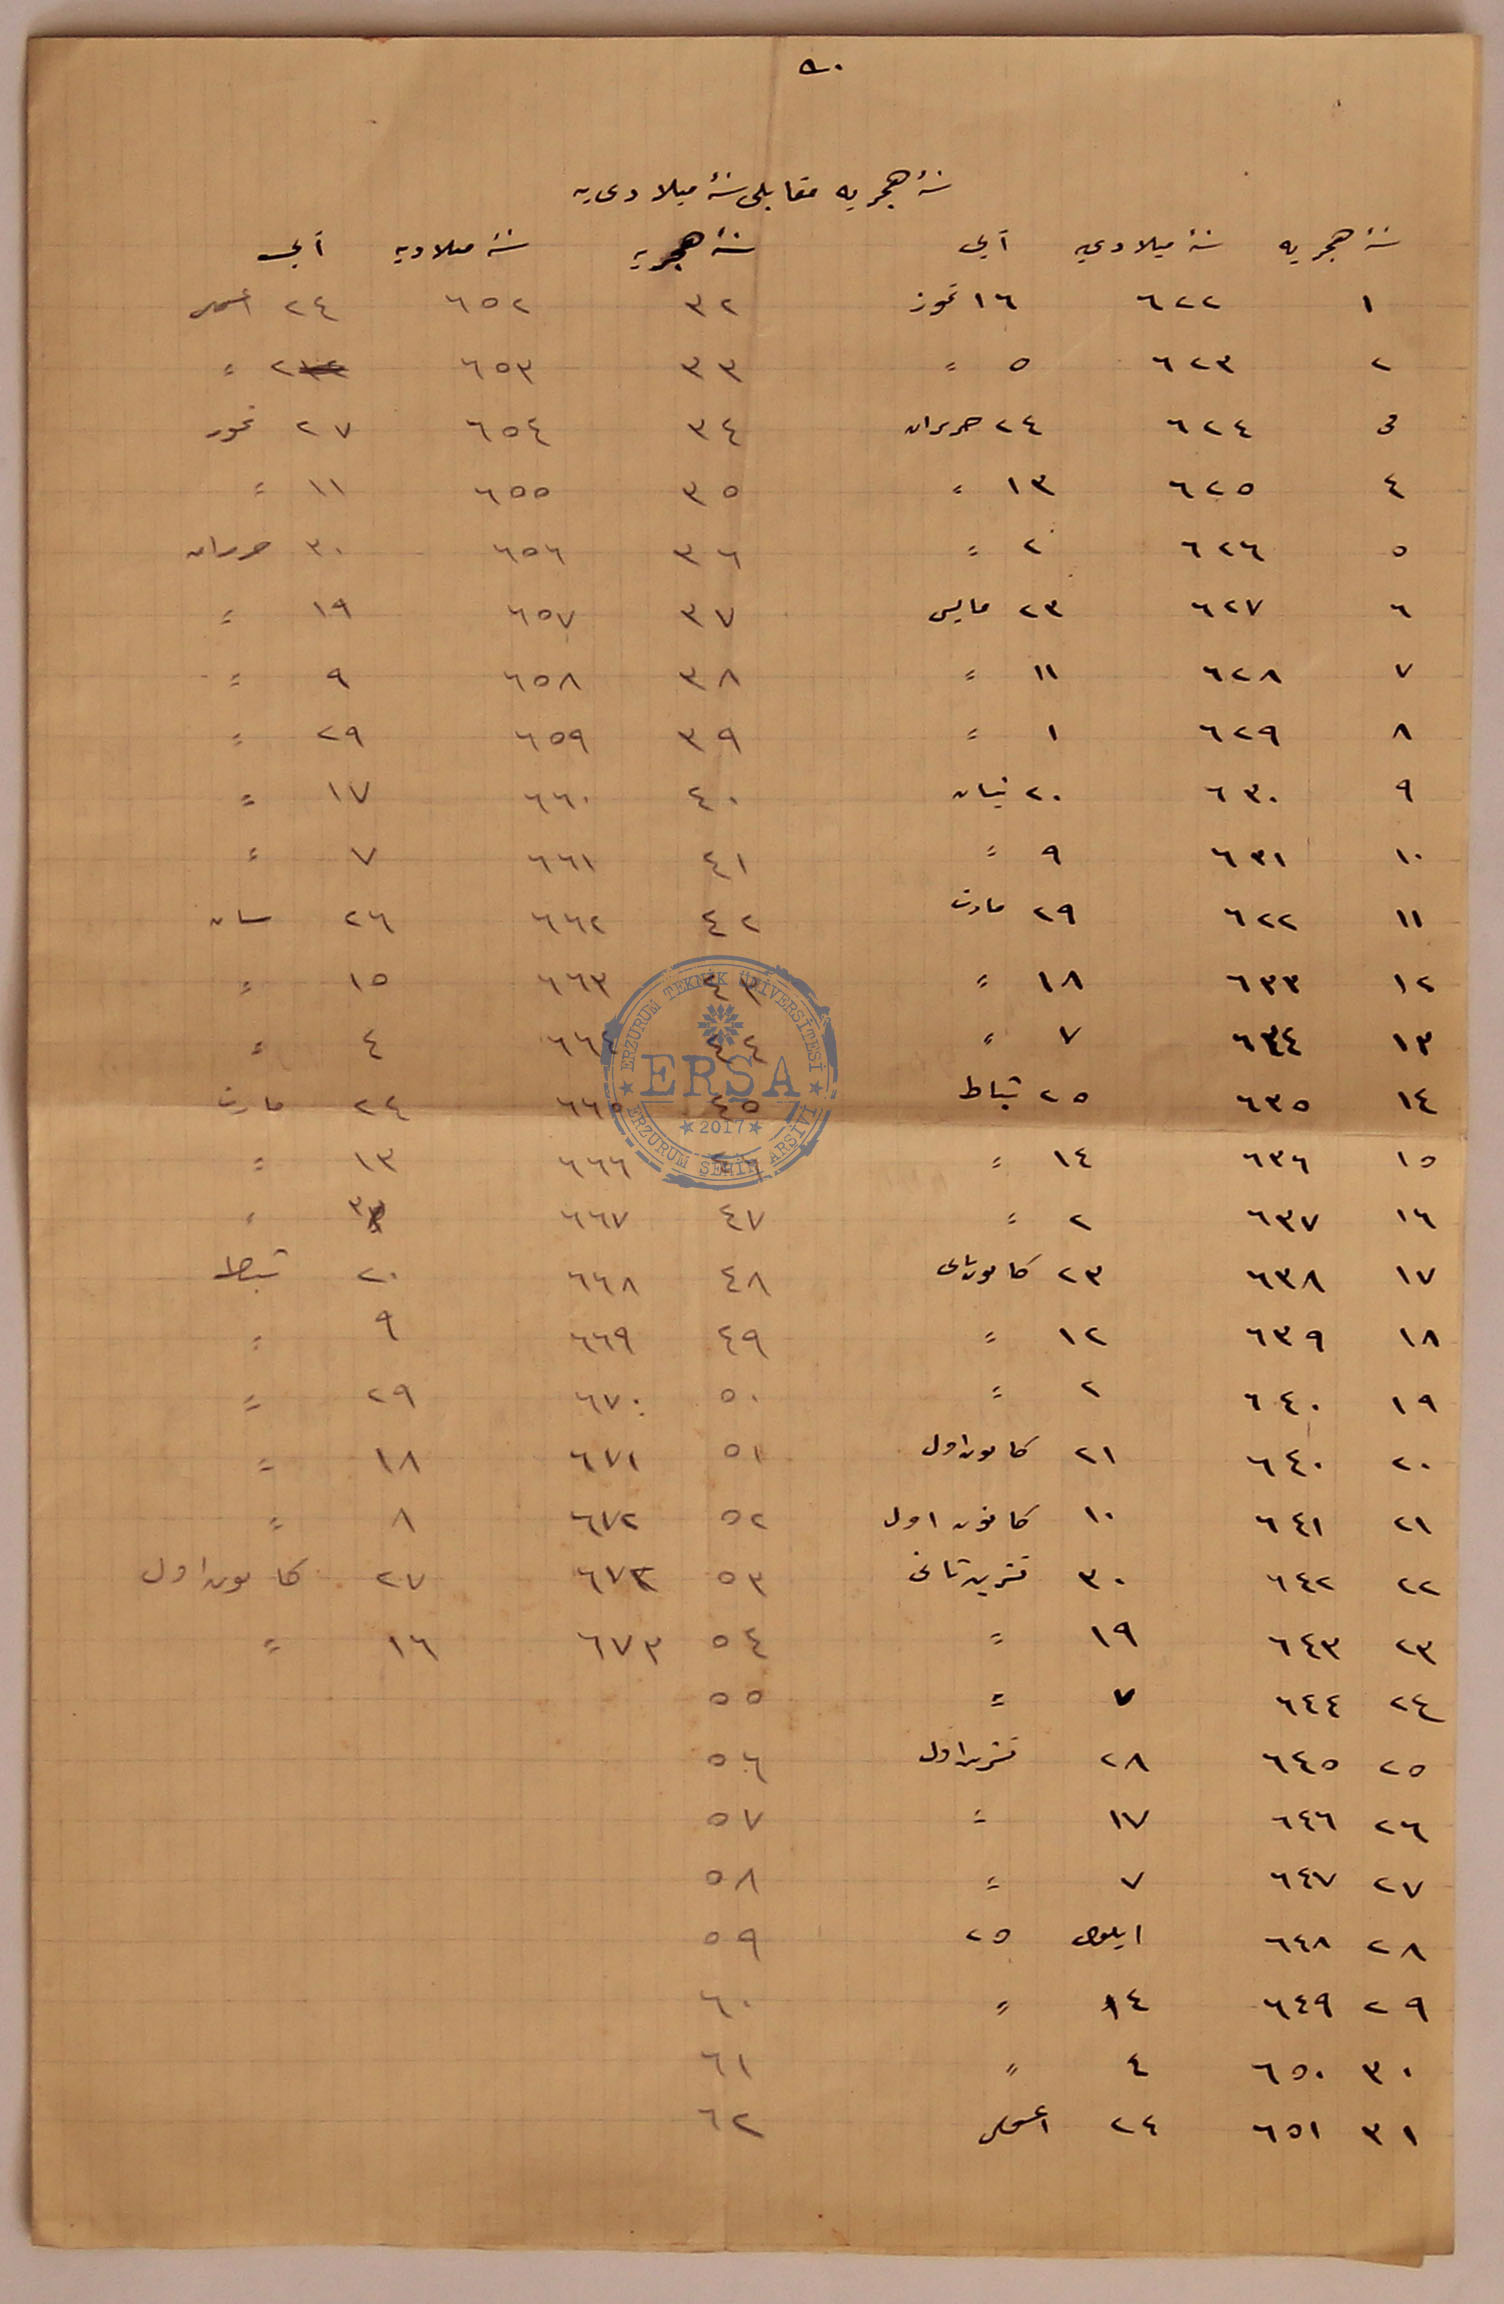 ٥٠
سنهٔ هجریه مقابلی سنهٔ میلادی‌یه
سنهٔ هجریه سنهٔ میلادی‌یه آیی
١ ٦٢٢ ١٦ تموز
٢ ٦٢٣ ٥ =
٣ ٦٢٤ ٢٤ حزیران
٤ ٦٢٥ ١٣ =
٥ ٦٢٦ ٢ =
٦ ٦٢٧ ٢٣ مایس
٧ ٦٢٨ ١١ =
٨ ٦٢٩ ١ =
٩ ٦٣٠ ٢٠ نیسان
١٠ ٦٣١ ٩ =
١١ ٦٢٢ ٢٩ مارت
١٢ ٦٣٣ ١٨ =
١٣ ٦٣٤ ٧ =
١٤ ٦٣٥ ٢٥ شباط
١٥ ٦٣٦ ١٤ =
١٦ ٦٣٧ ٢ =
١٧ ٦٣٨ ٢٣ کانون ثانی
١٨ ٦٣٩ ١٢ =
١٩ ٦٤٠ ٢ =
٢٠ ٦٤٠ ٢١ کانون اول
٢١ ٦٤١ ١٠ کانون اول
٢٢ ٦٤٢ ٣٠ تشرین ثانی
٢٣ ٦٤٣ ١٩ =
٢٤ ٦٤٤ ٧ =
٢٥ ٦٤٥ ٢٨ تشرین اول
٢٦ ٦٤٦ ١٧ =
٢٧ ٦٤٧ ٧ =
٢٨ ٦٤٨ ایلول ٢٥
٢٩ ٦٤٩ ١٤ =
٣٠ ٦٥٠ ٤ =
٣١ ٦٥١ ٢٤ اغستوس
سنهٔ هجریه سنهٔ میلادیه آیی
٣٢ ٦٥٢ ٢٤ اغستوس
٣٣ ٦٥٣ ٢ =
٣٤ ٦٥٤ ٢٧ تموز
٣٥ ٦٥٥ ١١ =
٣٦ ٦٥٦ ٣٠ حزیران
٣٧ ٦٥٧ ١٩ =
٣٨ ٦٥٨ ٩ =
٣٩ ٦٥٩ ٢٩ =
٤٠ ٦٦٠ ١٧ =
٤١ ٦٦١ ٧ =
٤٢ ٦٦٢ ٢٦ نیسان
٤٣ ٦٦٣ ١٥ =
٤٤ ٦٦٤ ٤ =
٤٥ ٦٦٥ ٢٤ مارت
٤٦ ٦٦٦ ١٣ =
٤٧ ٦٦٧ ٣ =
٤٨ ٦٦٨ ٢٠ شباط
٤٩ ٦٦٩ ٩ =
٥٠ ٦٧٠ ٢٩ =
٥١ ٦٧١ ١٨ =
٥٢ ٦٧٢ ٨ =
٥٣ ٦٧٢ ٢٧ کانون اول
٥٤ ٦٧٣ ١٦ =
٥٥
٥٦
٥٧
٥٨
٥٩
٦٠
٦١
٦٢
ERZURUM TEKNİK ÜNİVERSİTESİ
ERŞA
2017
ERZURUM ŞEHİR ARŞİVİ